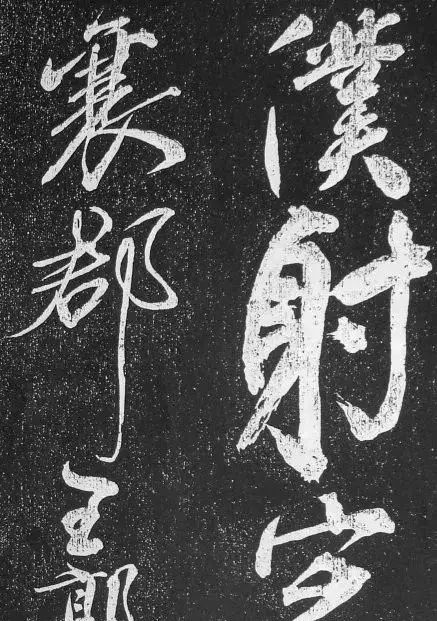 僕射定
襄郡王郭